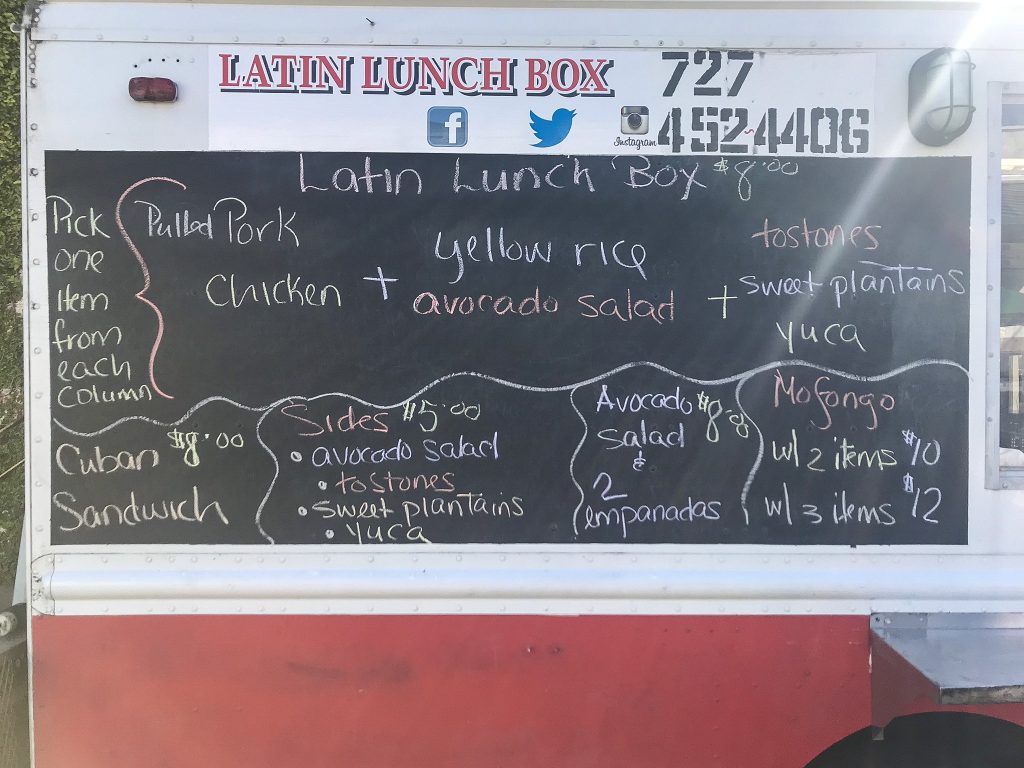 LATIN LUNCH BOX
727
452-4406
Instagram
Latin Lunch Box $8.00
Pick
one
item
from
each
column
Pulled Pork
Chicken
+
yellow rice
avocado salad
+
tostones
sweet plantains
yuca
Cuban $8.00
Sandwich
Sides $5.00
• avocado salad
• tostones
• sweet plantains
• yuca
Avocado $8.00
salad
&
2
empanadas
Mofongo
w/ 2 items $10
w/ 3 items $12